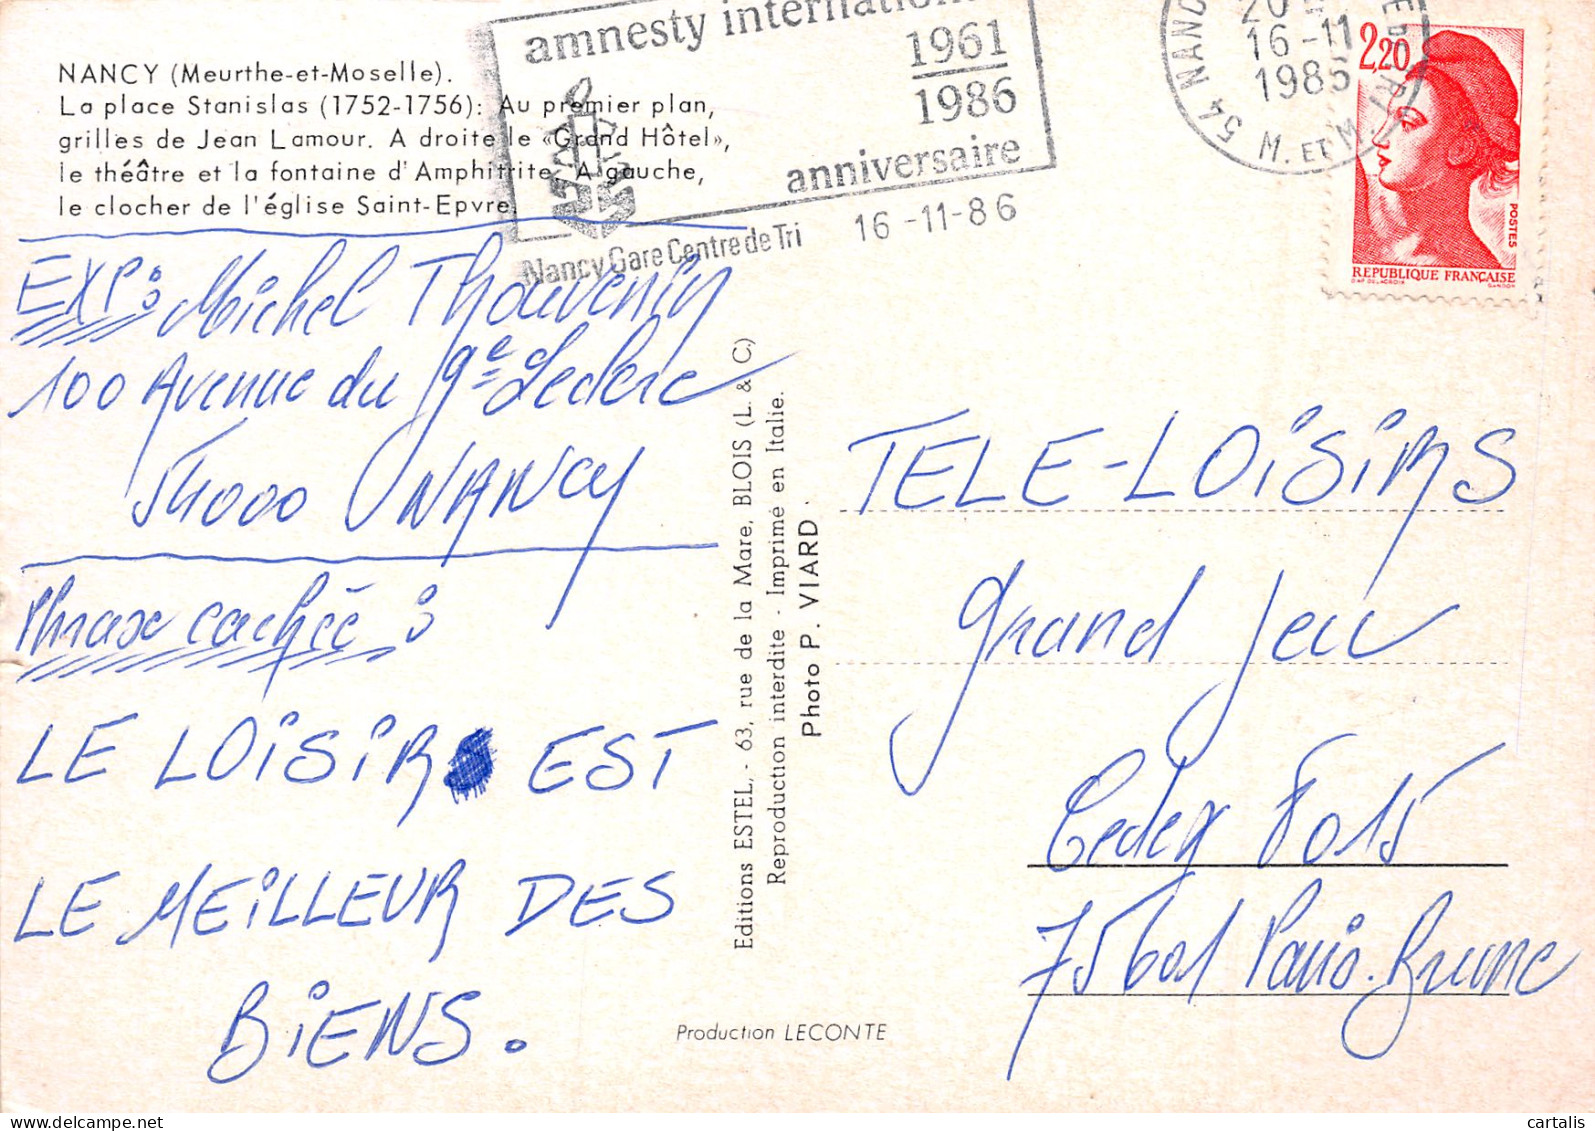 NANCY (Meurthe-et-Moselle).
La place Stanislas (1752-1756): Au premier plan,
grilles de Jean Lamour. A droite le «Grand Hôtel»,
le théâtre et la fontaine d'Amphitrite. A gauche,
le clocher de l'église Saint-Epvre.
amnesty international
1961
1986
anniversaire
Nancy Gare Centre de Tri 16-11-86
54 NANCY
16-11
1986
M. ET M.
2,20
POSTES
REPUBLIQUE FRANÇAISE
EXP: Michel Thouvenin
100 Avenue du Gal Leclerc
54000 NANCY
Phrase cachée :
LE LOISIR EST
LE MEILLEUR DES
BIENS.
Editions ESTEL, - 63, rue de la Mare, BLOIS (L. & C.)
Reproduction interdite - Imprimé en Italie.
Photo P. VIARD
TELE-LOISIRS
grand jeu
Cedex 7015
75601 Paris-Brune
Production LECONTE
cartalis
www.delcampe.net